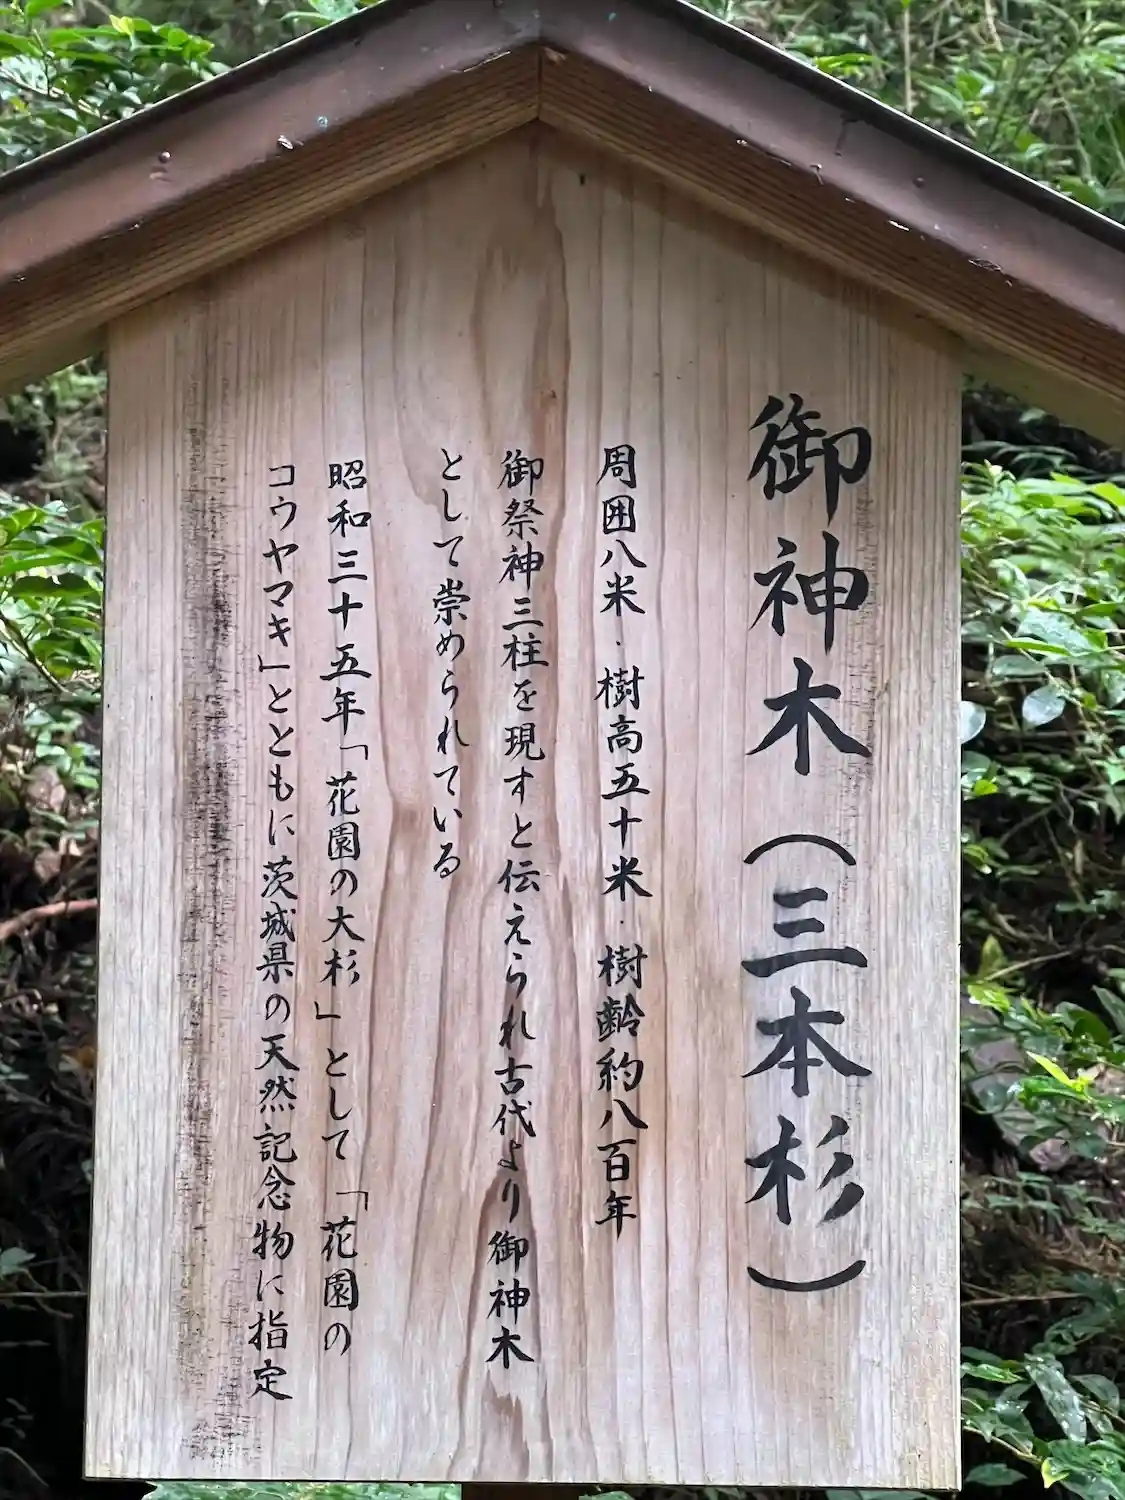 御神木（三本杉）
周囲八米・樹高五十米・樹齢約八百年
御祭神三柱を現すと伝えられ古代より御神木
として崇められている
昭和三十五年「花園の大杉」として「花園の
コウヤマキ」とともに茨城県の天然記念物に指定